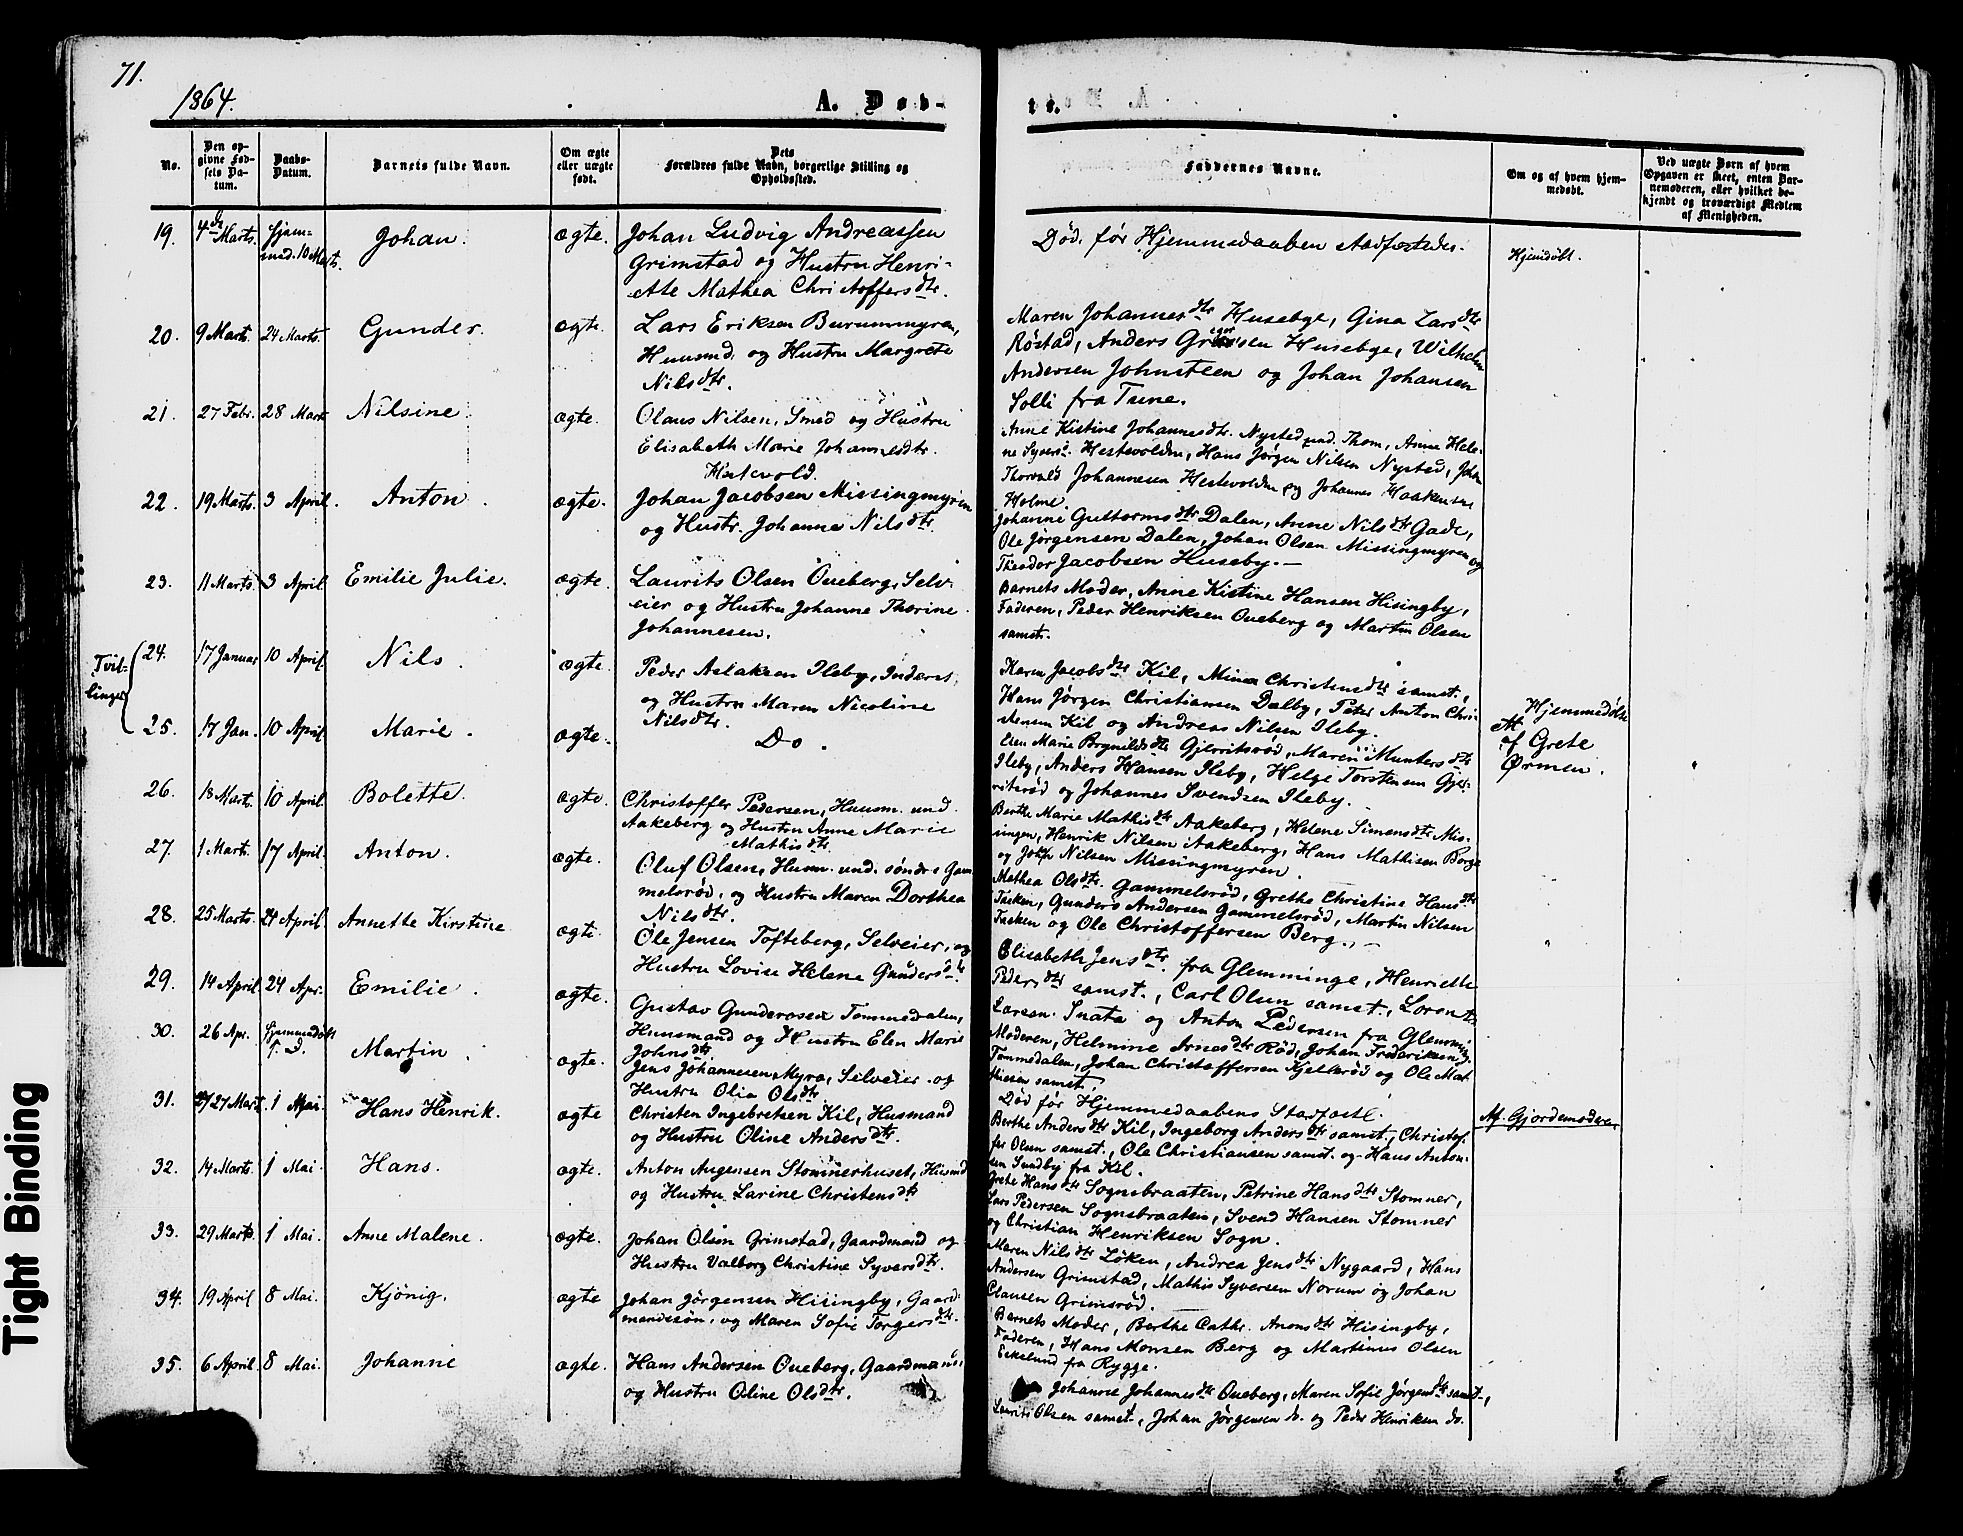 71.
1864.
A. Døb-
te.
No.
Den op-
givne Fød-
sels Da-
tum.
Daabs-
Datum.
Barnets fulde Navn.
Om ægte
eller uægte
født.
Dets
Forældres fulde Navn, borgerlige Stilling og
Opholdssted.
Faddernes Navne.
Om og af hvem hjem-
medøbt.
Ved uægte Børn af hvem
Opgaven er skeet, enten Bar-
nemoderen, eller hvilket be-
kjendt og troværdigt Medlem
af Menigheden.
19. 4de Marts. Hjem-
med. 10 Marts. Johan. ægte. Johan Ludvig Andreassen
Grimstad og Hustru Henri-
ette Mathea Christoffersdtr.
Død før Hjemmedaaben stadfæstedes.
Hjemdøbt.
20. 9 Marts. 24 Marts. Gunder. ægte. Lars Eriksen Burummyren,
Huusmd. og Hustru Margrete
Nilsdtr.
Maren Johannesdtr Husebye, Gina Larsdtr
Røstad, Anders Husebye, Wilhelm
Andersen Johnsteen og Johan Johansen
Solli fra Tune.
21. 27 Febr. 28 Mart. Nilsine. ægte. Olaus Nilsen, Smed og Hustru
Elisabeth Marie Johannesdtr.
Anne Kistine Johannesdtr. Nysted und. Thom, Anne Hele-
ne Hestevolden, Hans Jørgen Nilsen Nysted, Johan
Thorvald Johannesen Hestvolden og Johannes Haakensen
Holme.
22. 19 Marts. 3 April. Anton. ægte. Johan Jacobsen Missingmyren
og Hustr. Johanne Nilsdtr.
Johanne Guttormsdtr Dalen, Anne Nilsdtr Gade,
Ole Jørgensen Dalen, Johan Olsen Missingmyren og
Theodor Jacobsen Huseby.—
23. 11 Marts. 3 April. Emilie Julie. ægte. Laurits Olsen Oueberg, Selv-
eier og Hustru Johanne Thorine
Johannesen.
Barnets Moder, Anne Kistine Hansen Hisingby,
Faderen, Peder Henriksen Oueberg og Martin Olsen
samst.
Tvil-
linger
24. 17 Januar 10 April Nils. ægte. Peder Aslaksen Ileby, Inderst,
og Hustru Maren Nicoline
Nilsdtr.
Karen Jacobsdtr Kil, Mina Christensdtr samst.,
Hans Jørgen Christiansen Dalby, Peter Anton Chri-
stensen Kil og Andreas Nilsen Ileby.
25. 17 Jan. 10 April Marie. ægte. Do.
Elen Marie Brynildsdtr Gjerritsrød, Maren Muntersdtr
Ileby, Anders Hansen Ileby, Helge Torstensen Gjer-
ritsrød og Johannes Svendsen Ileby.
Hjemmedøbt
af Grete
Ørmen.
26. 18 Marts. 10 April Bolette. ægte. Christoffer Pedersen, Huusm. und.
Aakeberg og Hustru Anne Marie
Mathisdtr.
Berthe Marie Mathisdtr Aakeberg, Helene Simensdtr Mis-
singen, Henrik Nilsen Aakeberg, Hans Mathisen Borge
og Nilsen Missingmyren.
27. 1 Mart. 17 April. Anton. ægte. Oluf Olsen, Husm. und. søndre Gam-
melsrød, og Hustru Maren Dorthea
Nilsdtr.
Mathea Olsdtr. Gammelsrød, Grethe Christine Hansdtr
Tasken, Gunders Andersen Gammelsrød, Martin Nilsen
Tasken og Ole Christoffersen Berg.—
28. 25 Marts. 24 April. Annette Kirstine ægte. Ole Jensen Tofteberg, Selveier, og
Hustru Lovise Helene Gundersdtr
Elisabeth Jensdtr. fra Glemminge, Henriette
Pedersdtr samst., Carl Olsen samst., Lorents
Larsen Snata og Anton Pedersen fra Glemming.
29. 14 April. 24 Apr. Emilie. ægte. Gustav Gundersen Tommedalen,
Huusmand og Hustru Elen Marie
Johnsdtr.
Moderen, Helmine Arnesdtr Rød, Johan Frederiksen
Tommedalen, Johan Christoffersen Kjellerød og Ole Mat-
hisen samst.
30. 26 Apr. Hjemmedøbt
s. D. Martin. ægte. Jens Johannesen Myra, Selveier og
Hustru Olia Olsdtr
Død før Hjemmedaabens Stadfæstl.
Af Gjordemoderen
31. 27 Marts. 1 Mai. Hans Henrik. ægte Christen Ingebretsen Kil, Husmand
og Hustru Oline Andersdtr.
Berthe Andersdtr Kil, Ingeborg Andersdtr samst., Christof-
fer Olsen samst., Ole Christiansen samst. og Hans Anton-
sen Sundby fra Kil.
32. 14 Marts. 1 Mai Hans. ægte. Anton Augensen Stomnerhuset, Husmd
og Hustru Larine Christensdtr
Grete Hansdtr Sognsbraaten, Petrine Hansdtr Stomner,
Lars Pedersen Sognsbraaten, Svend Hansen Stomner
og Christian Henriksen Sogn.
33. 29 Marts. 1 Mai. Anne Malene. ægte. Johan Olsen Grimstad, Gaardmand og
Hustru Valborg Christine Syversdtr.
Maren Nilsdtr Løken, Andrea Jensdtr Nygaard, Hans
Andersen Grimstad, Mathis Syversen Norum og Johan
Clausen Grimsrød.
34. 19 April 8 Mai. Kjönig. ægte Johan Jørgensen Hisingby, Gaard-
mandssøn, og Maren Sofie Torgersdtr.
Barnets Moder, Berthe Cathr. Hisingby,
Faderen, Hans Monsen Berg og Martinus Olsen
Eekelund fra Rygge.
35. 6 April. 8 Mai. Johanne ægte. Hans Andersen Oueberg, Gaardmand,
og Hustru Oline Olsdtr.
Johanne Johannesdtr Oueberg, Maren Sofie Jørgensdtr samst.,
Laurits Olsen samst., Johan Jørgensen do. og Peder Henriksen do.
Tight Binding